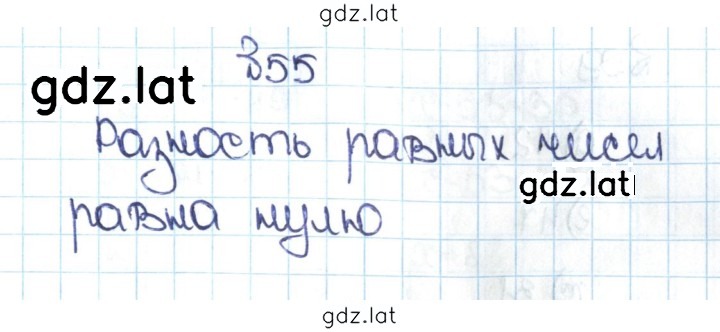 gdz.lat
355
gdz.lat
Разность равных чисел
gdz.lat
равна нулю
gdz.lat